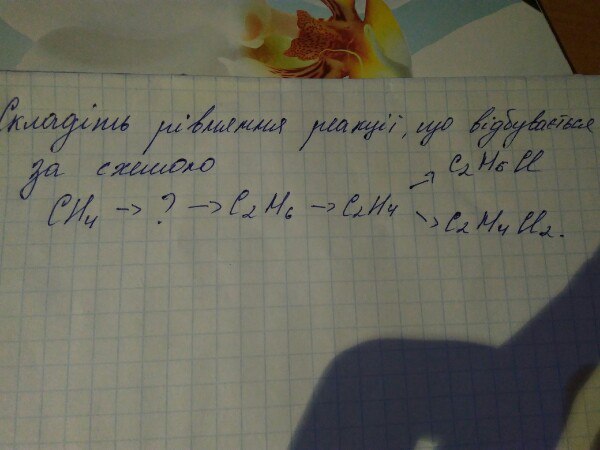 Складіть рівняння реакції, що відбувається
за схемою
C₂H₅Cl
CH₄ → ? → C₂H₆ → C₂H₄
C₂H₄Cl₂.